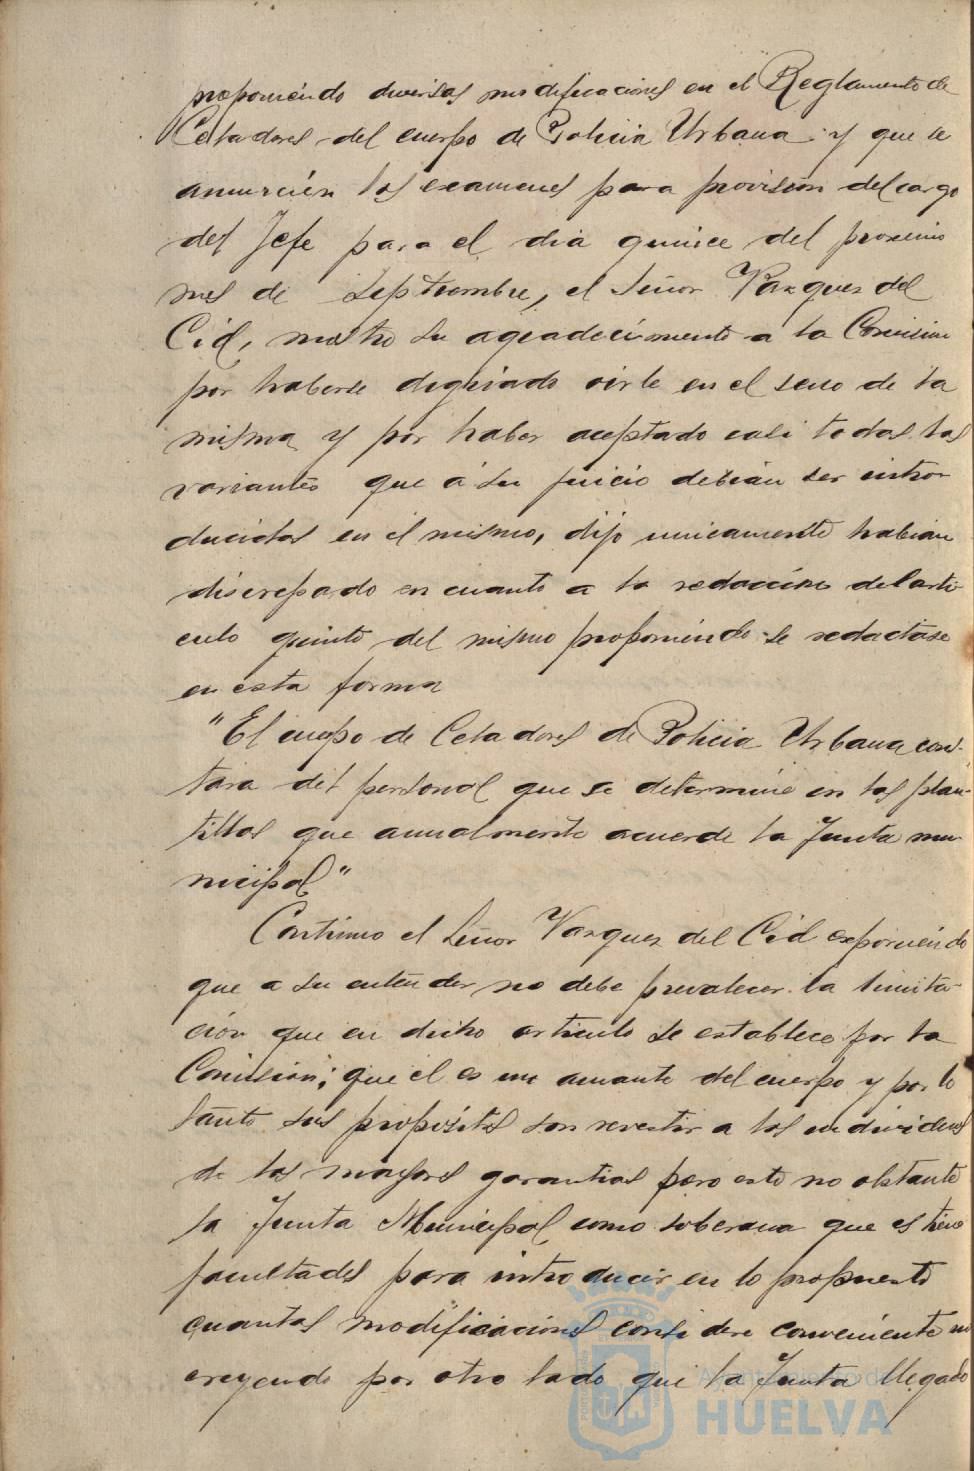 proponiendo diversas modificaciones en el Reglamento de
Celadores del cuerpo de Policia Urbana y que se
anuncien los examenes para provision del cargo
del Jefe para el dia quince del proximo
mes de Septiembre, el Señor Vazquez del
Cid, mostro su agradecimiento a la Comision
por haberse dignado oirle en el seno de la
misma y por haber aceptado casi todas las
variantes que á su juicio debian ser intro-
ducidas en el mismo, dijo unicamente habian
discrepado en cuanto a la redaccion del arti-
culo quinto del mismo proponiendo se redactase
en esta forma
"El cuerpo de Celadores de Policia Urbana cons-
tara del personal que se determine en las plan-
tillas que anualmente acuerde la Junta mu-
nicipal"
Continuo el Señor Vazquez del Cid exponiendo
que a su entender no debe prevalecer la limita-
ción que en dicho articulo se establece por la
Comision; que el es un amante del cuerpo y por lo
tanto sus propósitos son revestir a los individuos
de las mayores garantias pero esto no obstante
la Junta Municipal como soberana que es tiene
facultades para introducir en lo propuesto
cuantas modificaciones considere conveniente no
creyendo por otro lado que la Junta llegado
Ayuntamiento de
HUELVA